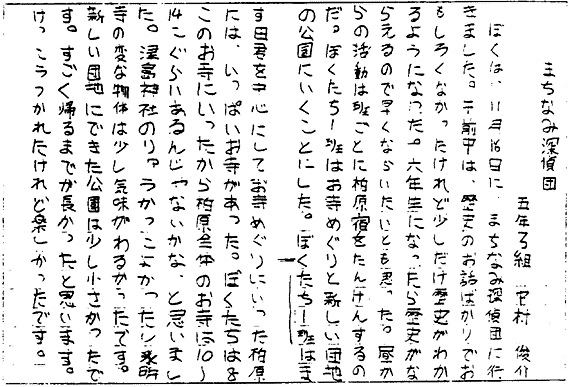 まちなみ探偵団
五年3組 村 俊介
ぼくは、11月16日に、まちなみ探偵団に行
きました。午前中は、歴史のお話ばかりでお
もしろくなかったけれど少しだけ歴史がわか
るようになった。六年生になったら歴史がな
らえるので早くならいたいとも思った。昼か
らの活動は班ごとに柏原宿をたんけんするの
だ。ぼくたち1班はお寺めぐりと新しい団地
の公園にいくことにした。ぼくたち1班はま
す田君を中心にしてお寺めぐりにいった柏原
には、いっぱいお寺があった。ぼくたちは8
このお寺にいったから柏原全体のお寺は10〜
14こぐらいあるんじゃないかな、と思いまし
た。神社のかっこよかったし
寺の変な物体は少し気味がわるかったです。
新しい団地にできた公園は少し小さかったで
す。すごく帰るまでが長かったと思います。
けっこうつかれたけれど楽しかったです。